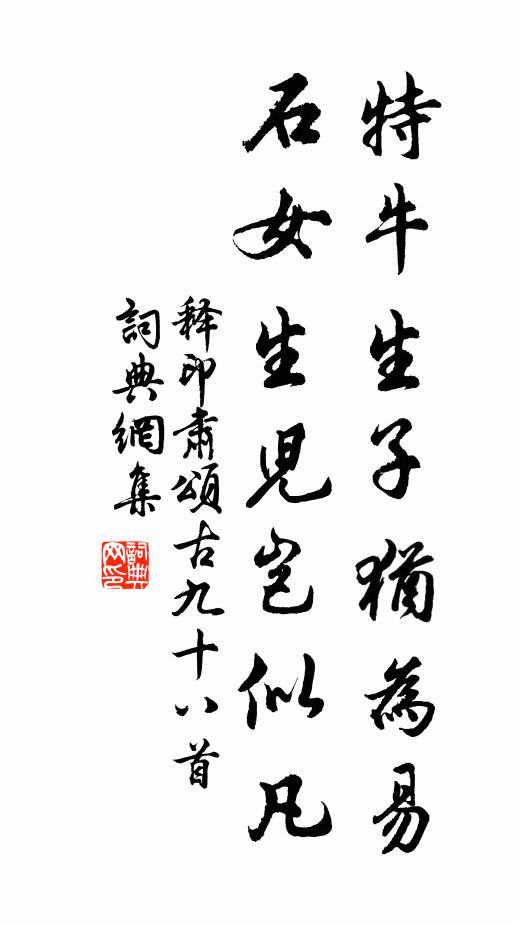 特牛生子猶為易
石女生兒豈似凡
釋印肅頌古九十八首
詞典網集
詞典網印